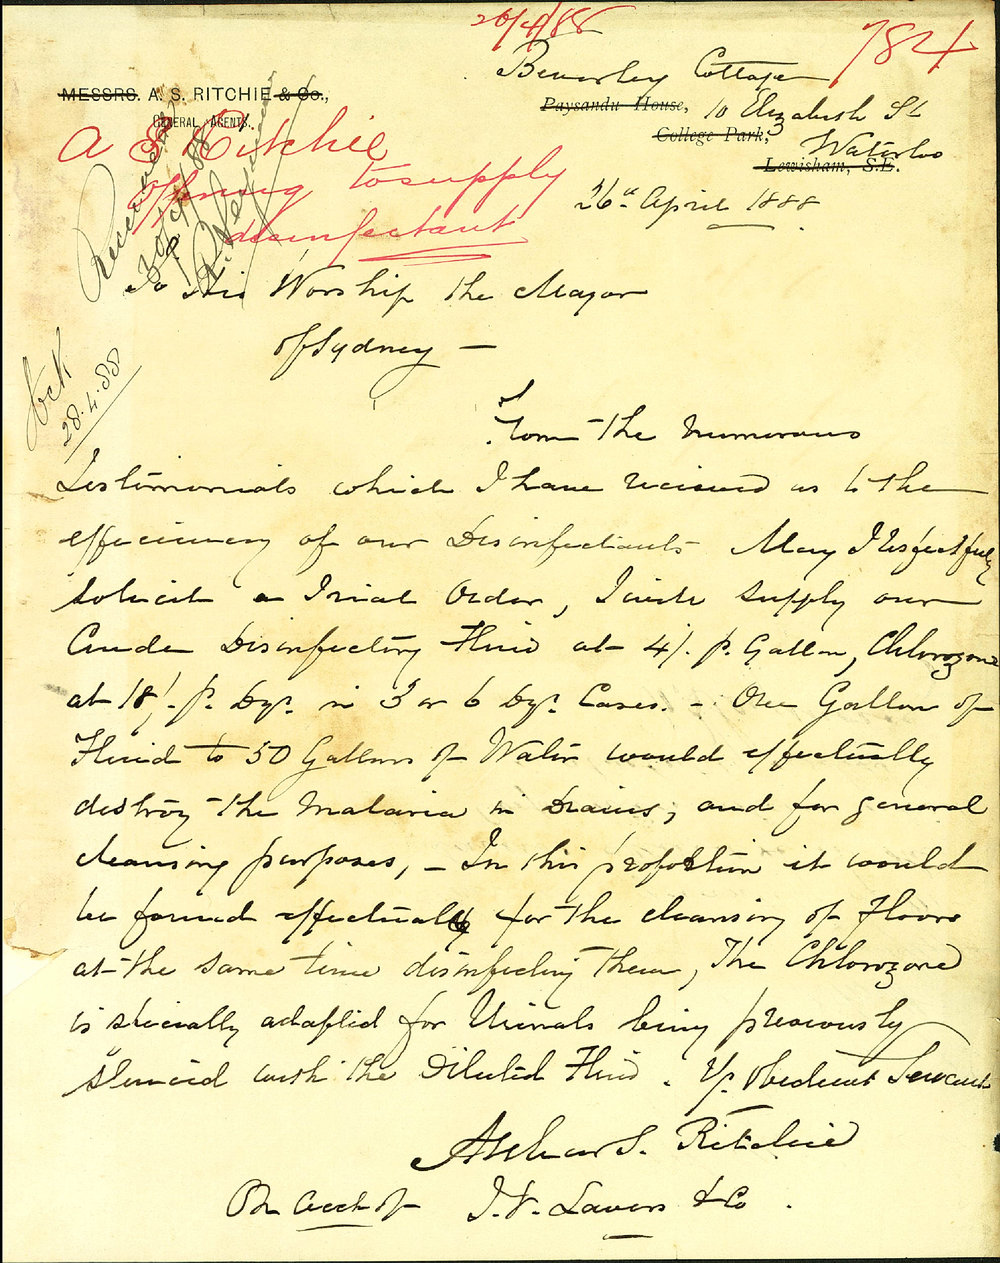 26/4/88
784
MESSRS. A. S. RITCHIE & Co.,
GENERAL AGENTS.
Beverley Cottage
Paysandu House,
10 Elizabeth St
College Park,
Waterloo
Lewisham, S.E.
26th April 1888
A S Ritchie
offering to supply
disinfectant
Received
30/4/88
To His Worship the Mayor
of Sydney —
Ack
28.4.88
From the numerous
Testimonials which I have received as to the
efficiency of our Disinfectants May I respectfully
solicit a Trial Order, I invite supply our
Crude Disinfecting Fluid at 4/- p. Gallon, Chlorozone
at 18/- p. Dzn. in 3 or 6 Dzn. Cases. - One Gallon of
Fluid to 50 Gallons of Water would effectually
destroy the Malaria in Drains, and for general
cleansing purposes, - In this proportion it would
be found effectually for the cleansing of Floors
at the same time disinfecting them, The Chlorozone
is specially adapted for Urinals being previously
sluiced with the Diluted Fluid. Yr. Obedient Servant
Arthur S. Ritchie
On Acct of T. W. Lavers & Co.